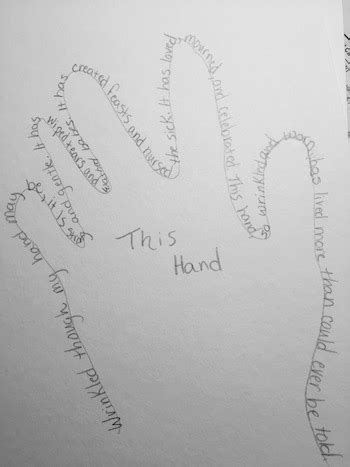 Wrinkled though my hand may and gentle. It has babies. It has created feasts and nursed the sick. It has loved, mourned, and celebrated. This hand, so wrinkled and worn, has lived more than could ever be told.
This
Hand